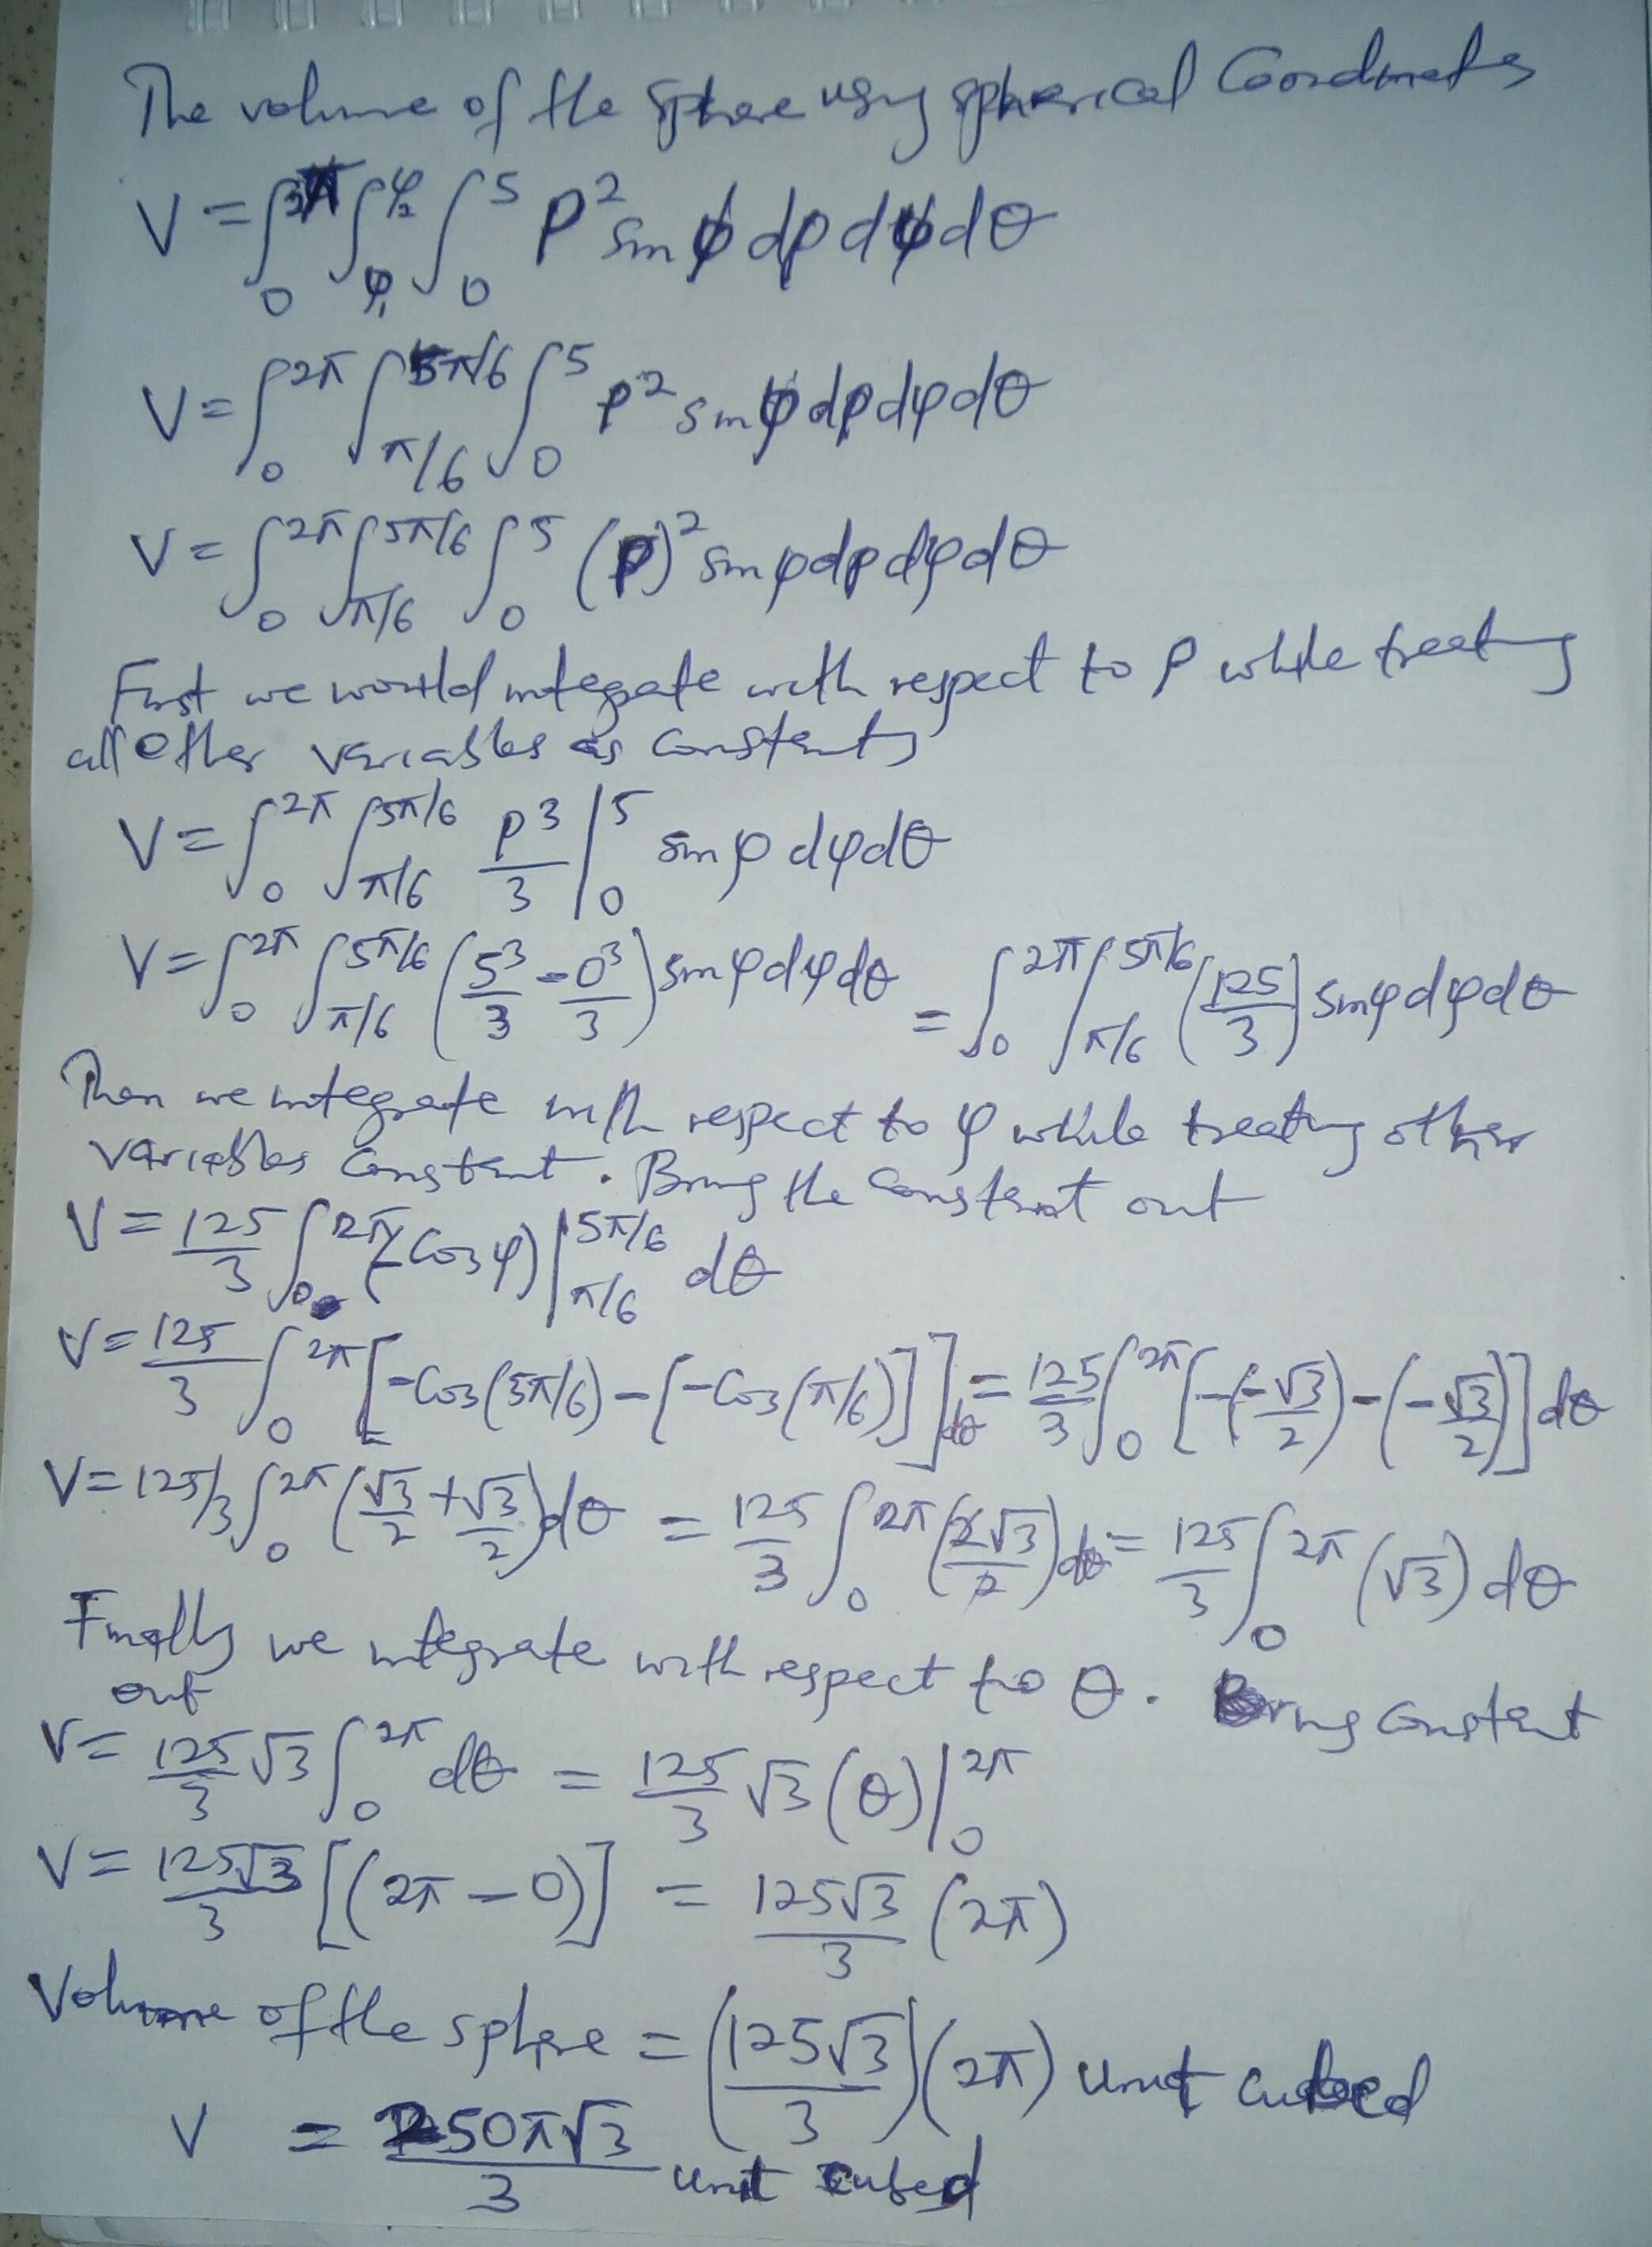 The volume of the sphere using spherical Coordinates
V = ∫₀^2π ∫_φ₁^φ₂ ∫₀^5 ρ² sin φ dρ dφ dθ
V = ∫₀^2π ∫_π/6^5π/6 ∫₀^5 ρ² sin φ dρ dφ dθ
V = ∫₀^2π ∫_π/6^5π/6 ∫₀^5 (ρ)² sin φ dρ dφ dθ
First we would integrate with respect to ρ while treating
all other variables as constants
V = ∫₀^2π ∫_π/6^5π/6 ρ³/3 |₀^5 sin φ dφ dθ
V = ∫₀^2π ∫_π/6^5π/6 (5³/3 - 0³/3) sin φ dφ dθ = ∫₀^2π ∫_π/6^5π/6 (125/3) sin φ dφ dθ
Then we integrate with respect to φ while treating other
variables constant. Bring the constant out
V = 125/3 ∫₀^2π (-Cos φ) |_π/6^5π/6 dθ
V = 125/3 ∫₀^2π [-Cos(5π/6) - [-Cos(π/6)]] dθ = 125/3 ∫₀^2π [-(-√3/2) - (-√3/2)] dθ
V = 125/3 ∫₀^2π (√3/2 + √3/2) dθ = 125/3 ∫₀^2π (2√3/2) dθ = 125/3 ∫₀^2π (√3) dθ
Finally we integrate with respect to θ. Bring constant
out
V = 125/3 √3 ∫₀^2π dθ = 125/3 √3 (θ) |₀^2π
V = 125√3/3 [(2π - 0)] = 125√3/3 (2π)
Volume of the sphere = (125√3/3)(2π) unit cubed
V = 250π√3/3 unit cubed